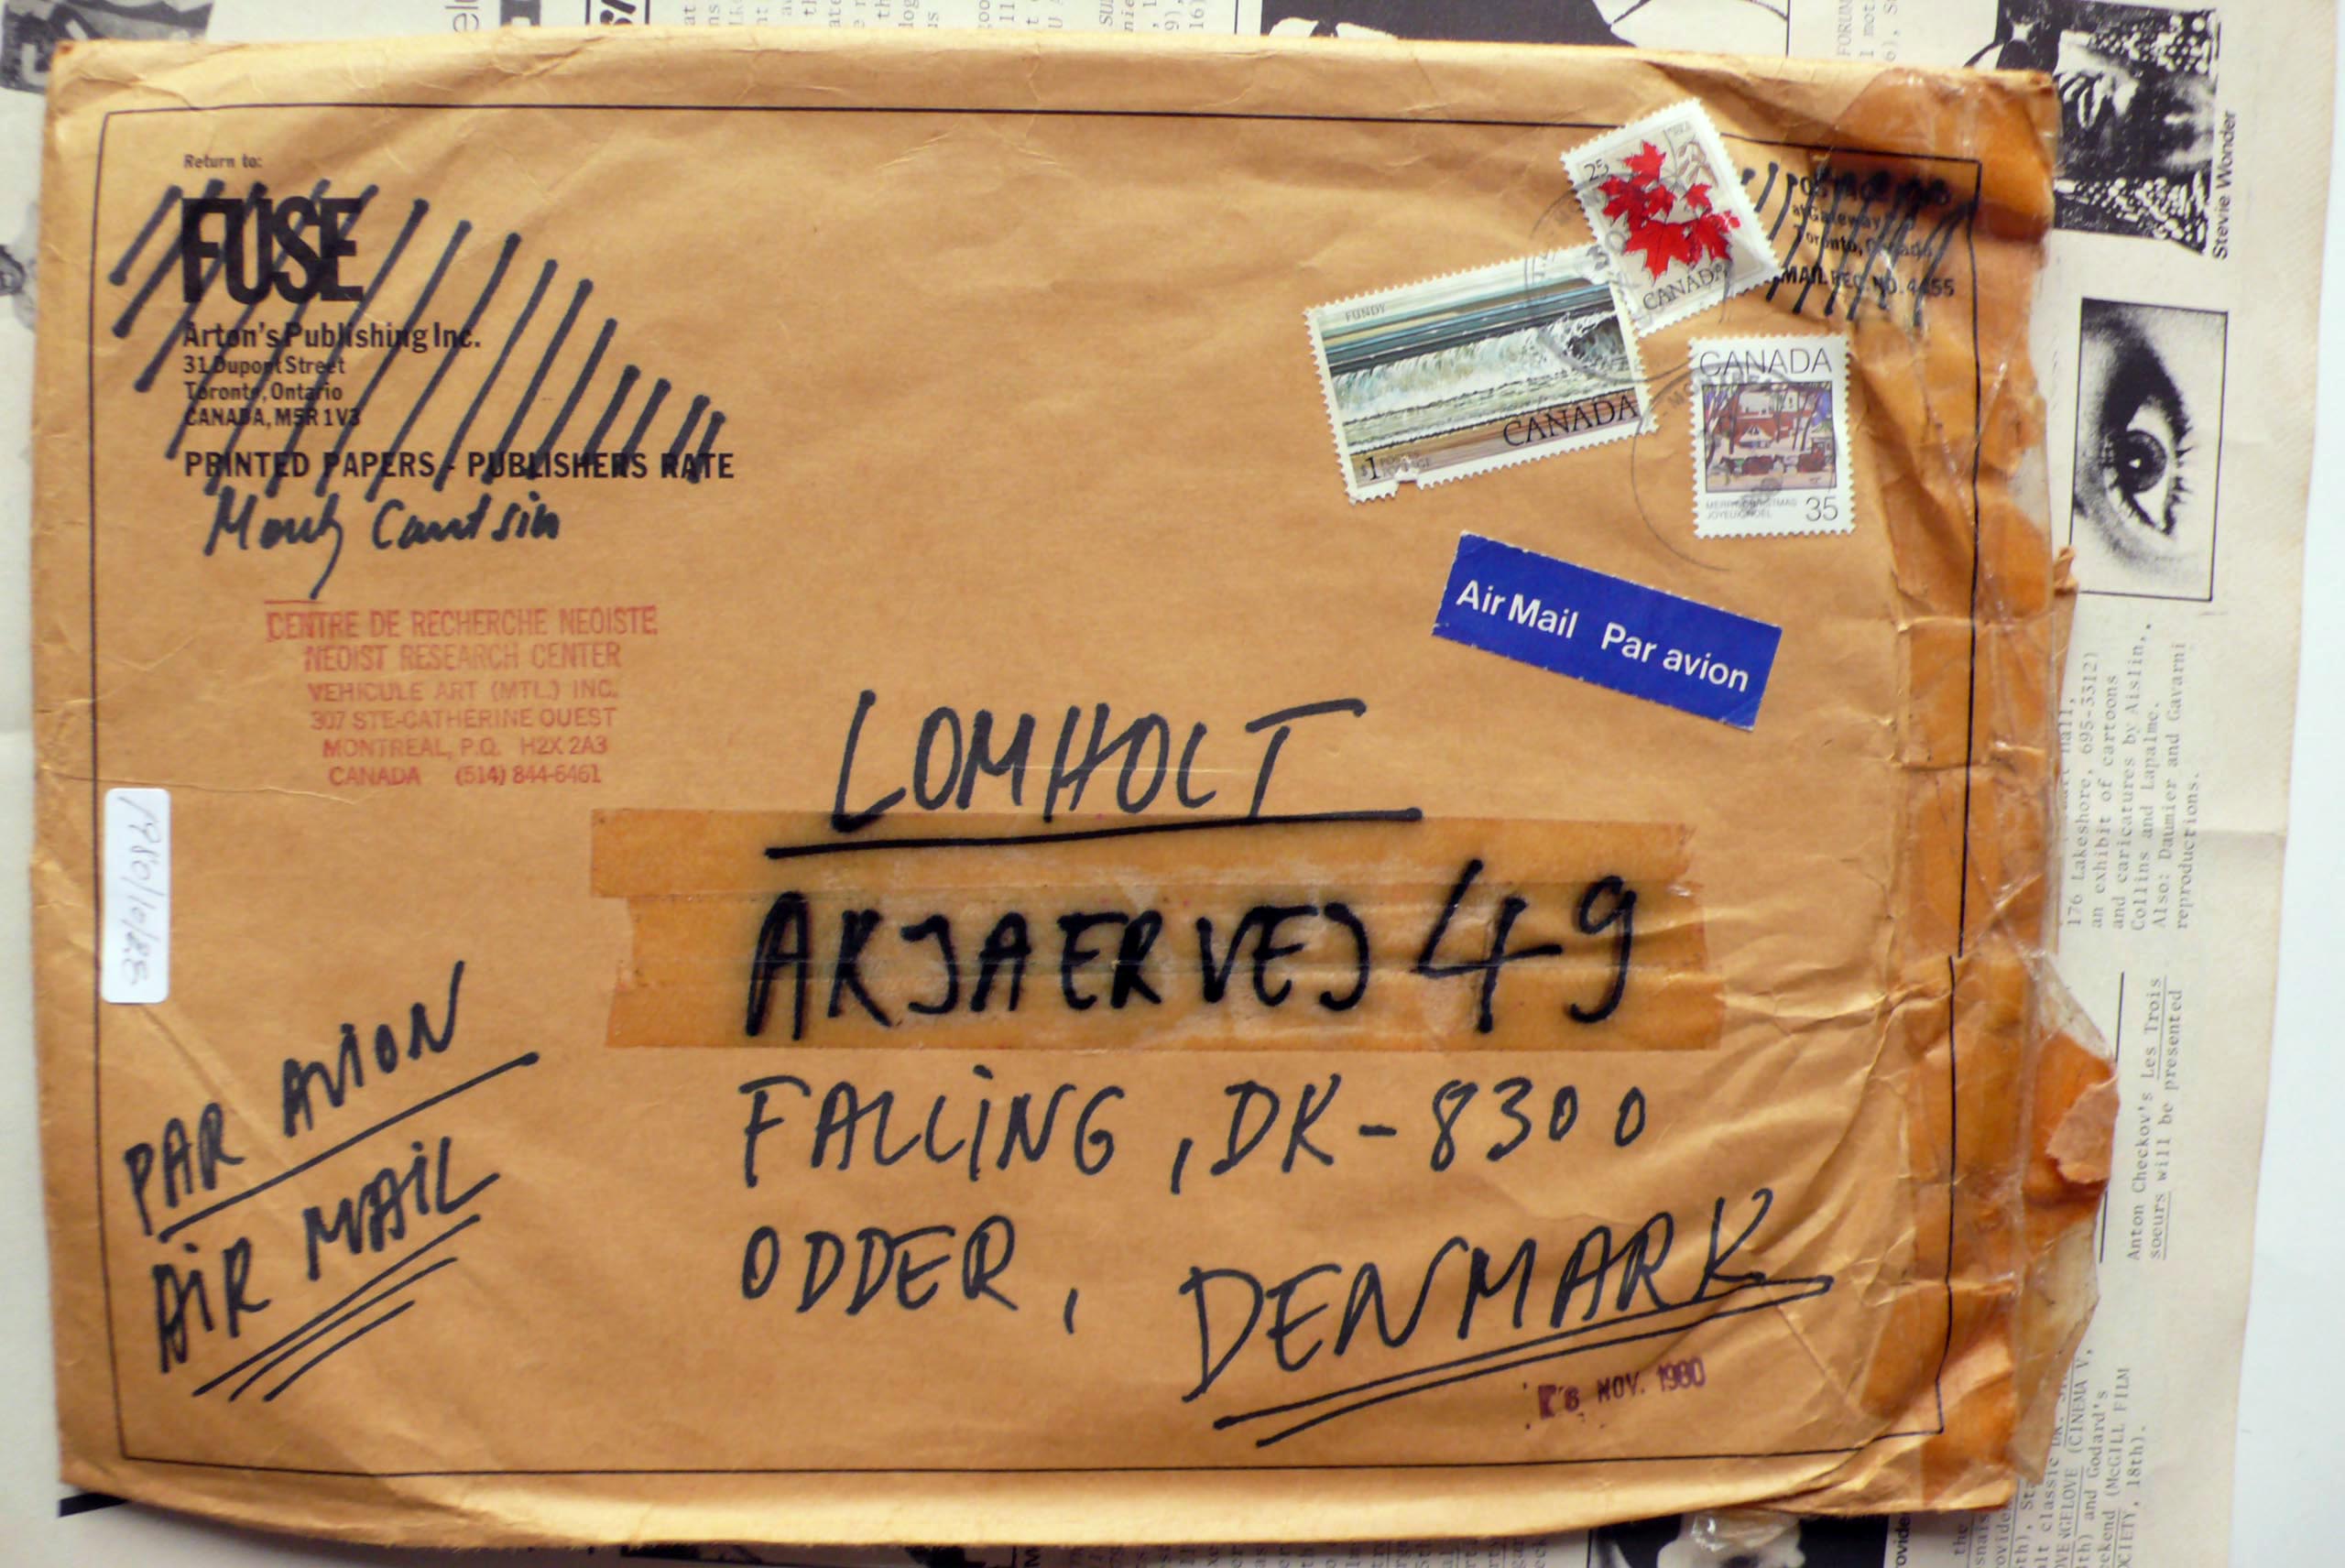 Return to:
FUSE
Arton's Publishing Inc.
31 Dupont Street
Toronto, Ontario
CANADA, M5R 1V3
PRINTED PAPERS - PUBLISHERS RATE
Monty Cantsin
CENTRE DE RECHERCHE NEOISTE
NEOIST RESEARCH CENTER
VEHICULE ART (MTL.) INC.
307 STE-CATHERINE OUEST
MONTREAL, P.Q. H2X 2A3
CANADA (514) 844-6461
25
CANADA
FUNDY
CANADA
$1
CANADA
MERRY CHRISTMAS
JOYEUX NOËL
35
at Gateway
Toronto, Canada
MAIL REG. NO. 4455
Air Mail Par avion
LOMHOLT
AKJAERVEJ 49
FALLING, DK-8300
ODDER, DENMARK
PAR AVION
AIR MAIL
NOV. 1980
Stevie Wonder
176 Lakeshore, 695-3312)
an exhibit of cartoons
and caricatures by Aislin,
Collins and Lapalme.
Also: Daumier and Gavarni
reproductions.
Anton Checkov's Les Trois
soeurs will be presented
(CINEMA V,
th) and Godard's
ekend (McGILL FILM
18th).